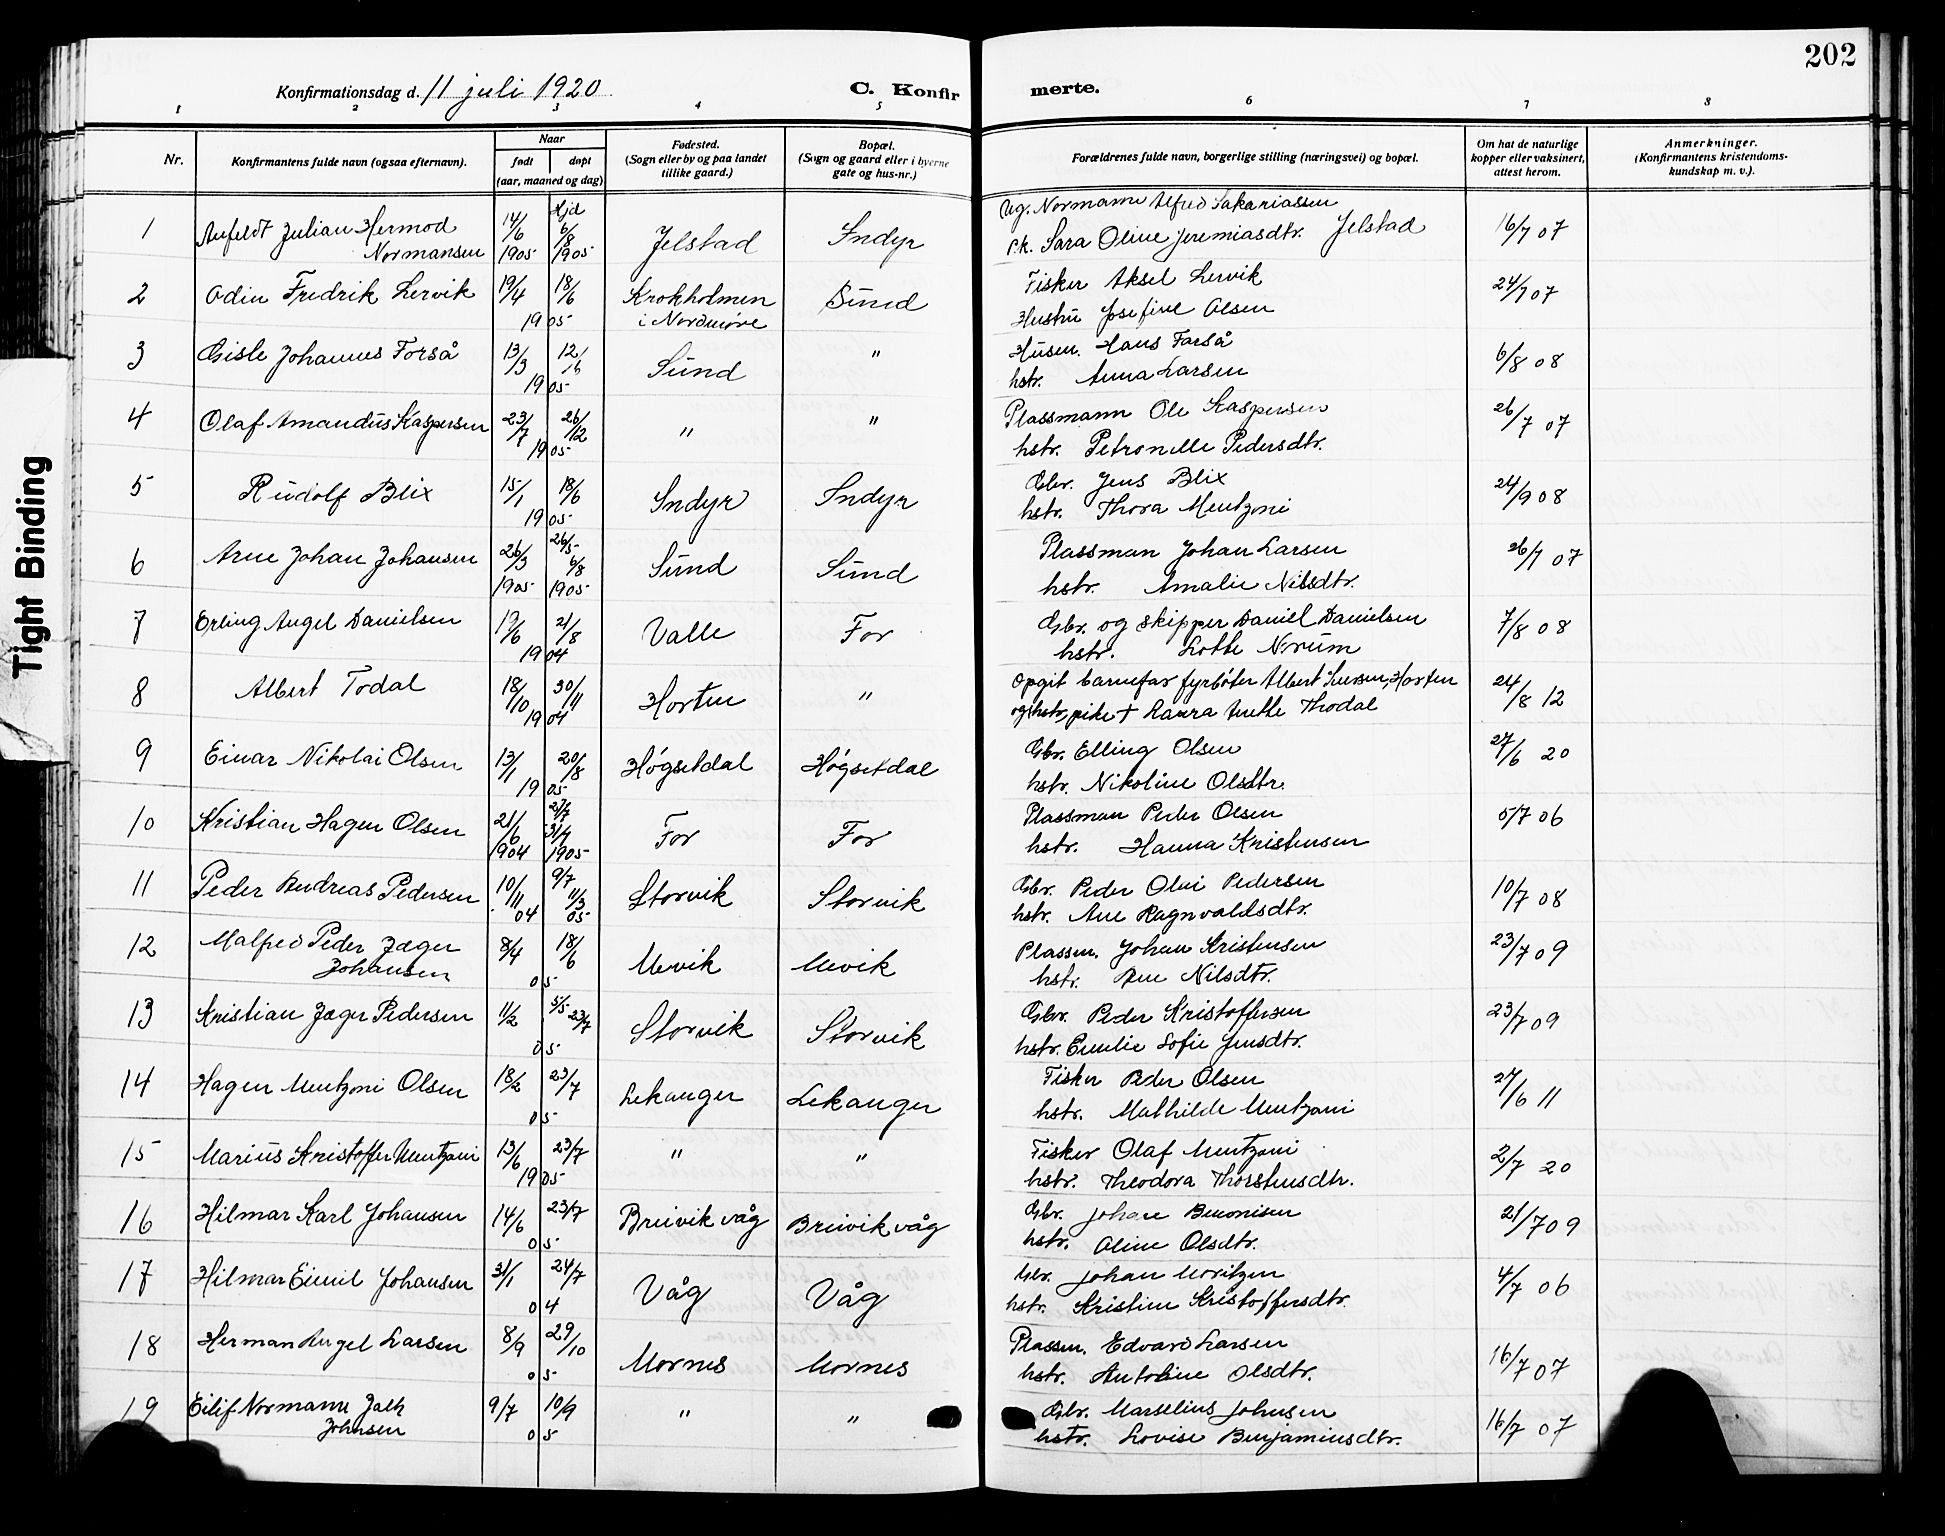 202
Konfirmationsdag d. 11 juli 1920.
C. Konfirmerte.
1 2 3 4 5 6 7 8
Nr.
Konfirmantens fulde navn (ogsaa efternavn).
Naar
født døpt
(aar, maaned og dag)
Fødested.
(Sogn eller by og paa landet
tillike gaard.)
Bopæl.
(Sogn og gaard eller i byerne
gate og hus-nr.)
Forældrenes fulde navn, borgerlige stilling (næringsvei) og bopæl.
Om hat de naturlige
kopper eller vaksinert,
attest herom.
Anmerkninger.
(Konfirmantens kristendoms-
kundskap m. v.).
Ug. Normann Alfred Sakariassen
1 Julian Hermod 14/6 Hjd 6/8 Jelstad Indyr p.k. Sara Oline Jeremiasdtr. Jelstad 16/7 07
Normansen 1905 1905
2 Odin Fredrik Lervik 19/4 18/6 Krokholmen Sund Fisker Aksel Lervik 24/7 07
1905 i Nordmøre Hustru Josefine Olsen
3 Gisle Johannes Forså 13/3 12/ Sund " Husm. Hans Forså 6/8 08
1905 hstr. Anna Larsen
4 Olaf Amandus Kaspersen 23/7 26/12 " " Plassmann Ole Kaspersen 26/7 07
1905 hstr. Petronelle Pedersdtr.
5 Rudolf Blix 15/1 18/6 Indyr Indyr Gbr. Jens Blix 24/9 08
1905 hstr. Thora Mentzoni
6 Arne Johan Johansen 26/3 26/5 6/8 Sund Sund Plassman Johan Larsen 26/7 07
1905 1905 hstr. Amalie Nilsdtr.
7 Erling Angel Danielsen 19/6 21/8 Valle For Gbr. og skipper Daniel Danielsen 7/8 08
1904 hstr. Lotte Norum
8 Albert Todal 18/10 30/11 Horten " Opgit barnefar fyrbøter Albert Iversen, Horten 24/8 12
1904 pike + Laura Anette Thodal
9 Einar Nikolai Olsen 13/1 20/8 Høgsetdal Høgsetdal Gbr. Elling Olsen 27/6 20
1905 hstr. Nikoline Olsdtr.
10 Kristian Hagen Olsen 21/6 27/7 31/7 For For Plassman Peder Olsen 5/7 06
1904 1905 hstr. Hanna Kristensen
11 Peder Andreas Pedersen 10/11 9/7 11/3 Storvik Storvik Gbr. Peder Olai Pedersen 10/7 08
04 05 hstr. Ane Ragnvaldsdtr.
12 Malfred Peder Jæger 8/4 18/6 Mevik Mevik Plassm. Johan Kristensen 23/7 09
Johansen 05 hstr. Ane Nilsdtr.
13 Kristian Jæger Pedersen 11/2 5/5 23/7 Storvik Storvik Gbr. Peder Kristoffersen 23/7 09
05 hstr. Emilie Sofie Jensdtr.
14 Hagen Mentzoni Olsen 18/2 23/7 Lekanger Lekanger Fisker Peder Olsen 27/6 11
05 hstr. Mathilde Mentzoni
15 Marius Kristoffer Mentzoni 13/6 23/7 " " Fisker Olaf Mentzoni 2/7 20
1905 hstr. Theodora Thorstensdtr.
16 Hilmar Karl Johansen 14/6 23/7 Breivik våg Breivik våg Gbr. Johan Benonisen 21/7 09
05 hstr. Oline Olsdtr.
17 Hilmar Eimil Johansen 31/1 24/7 Våg Våg Gbr. Johan Moritzen 4/7 06
04 hstr. Kristine Kristoffersdtr.
18 Herman Angel Larsen 8/9 29/10 Mornes Mornes Plassm. Edvard Larsen 16/7 07
05 hstr. Antoline Olsdtr.
19 Eilif Normann 9/7 10/9 " " Gbr. Marselius Johnsen 16/7 07
Johnsen 05 hstr. Lovise Benjaminsdtr.
Tight Binding